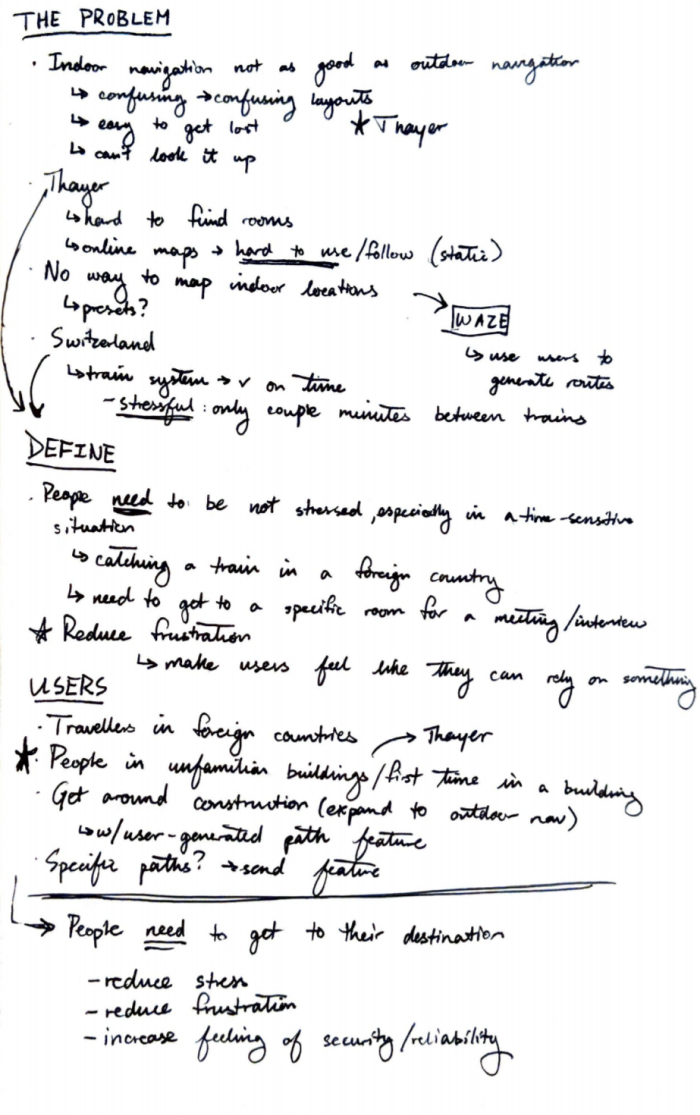 THE PROBLEM
· Indoor navigation not as good as outdoor navigation
↳ confusing → confusing layouts
↳ easy to get lost ★ Thayer
↳ can't look it up
· Thayer
↳ hard to find rooms
↳ online maps → hard to use/follow (static)
· No way to map indoor locations →
↳ presets? WAZE
· Switzerland ↳ use users to
↳ train system → v on time generate routes
- stressful: only couple minutes between trains
DEFINE
· People need to be not stressed, especially in a time-sensitive
situation
↳ catching a train in a foreign country
↳ need to get to a specific room for a meeting/interview
★ Reduce frustration
↳ make users feel like they can rely on something
USERS
· Travellers in foreign countries → Thayer
★· People in unfamiliar buildings/first time in a building
· Get around construction (expand to outdoor nav)
↳ w/user-generated path feature
· Specific paths? → send feature
→ People need to get to their destination
- reduce stress
- reduce frustration
- increase feeling of security/reliability